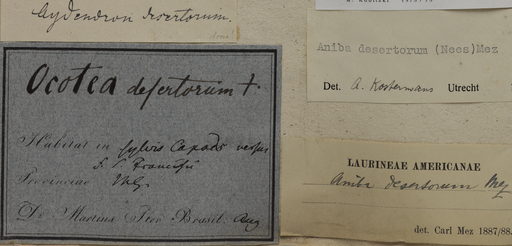 Aydendron desertorum.
Ocotea desertorum †.
Habitat in sylvis Capods versus
Provinciae
Dr. Martius Iter Brasil. Aug
Aniba desertorum (Nees)Mez
Det. A. Kostermans Utrecht
LAURINEAE AMERICANAE
Aniba desertorum Mez
det. Carl Mez 1887/88.